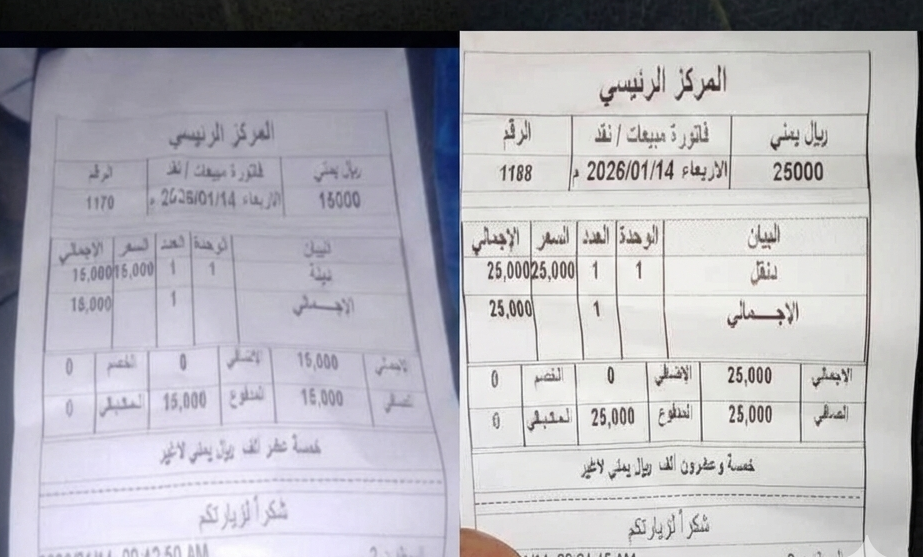 المركز الرئيسي
ريال يمني فاتورة مبيعات / نقد الرقم
25000 الاربعاء 2026/01/14 م 1188
البيان الوحدة العدد السعر الإجمالي
دنقل 1 1 25,000 25,000
الإجمالي 1 25,000
الإجمالي 25,000 الإضافي 0 الخصم 0
الصافي 25,000 المدفوع 25,000 المتبقي 0
خمسة وعشرون الف ريال يمني لاغير
شكراً لزيارتكم
المركز الرئيسي
ريال يمني فاتورة مبيعات / نقد الرقم
15000 الاربعاء 2026/01/14 م 1170
البيان الوحدة العدد السعر الإجمالي
1 1 15,000 15,000
الإجمالي 1 15,000
15,000 الإضافي 0 الخصم 0
15,000 المدفوع 15,000 0
خمسة عشر الف ريال يمني لاغير
شكراً لزيارتكم